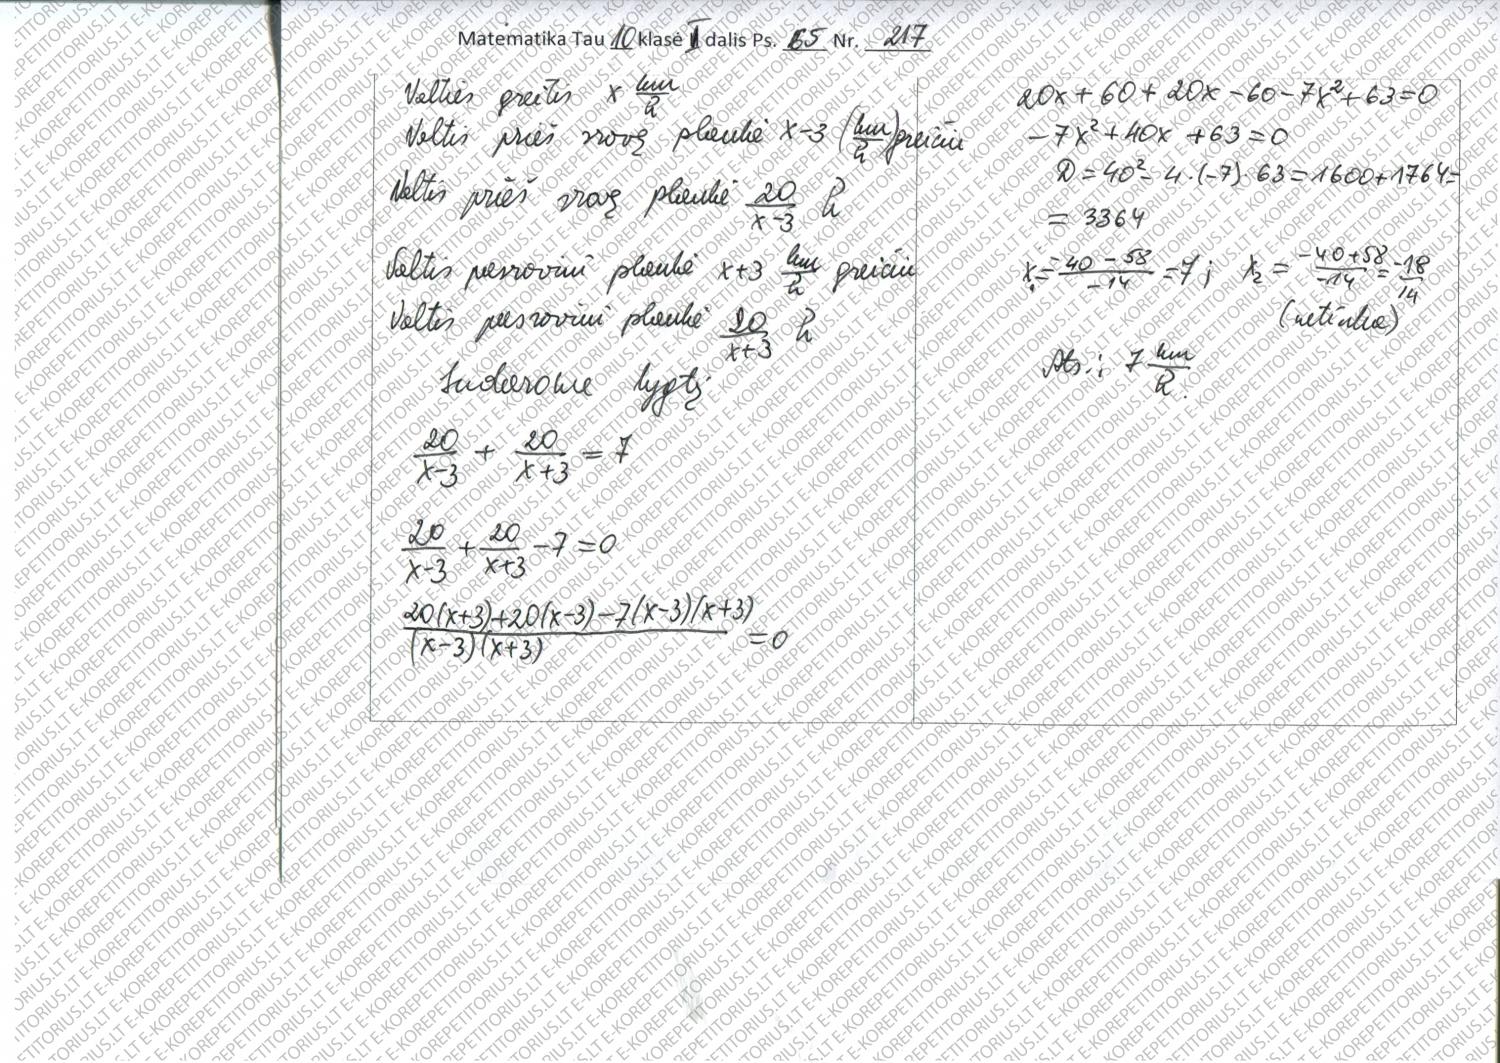 Matematika Tau 10 klasė II dalis Ps. 65 Nr. 217
Valties greitis x km/h
Valtis prieš srovę plaukė x-3 (km/h) greičiu
Valtis prieš srovę plaukė 20/(x-3) h
Valtis pasroviui plaukė x+3 km/h greičiu
Valtis pasroviui plaukė 20/(x+3) h
Sudarome lygtį:
20/(x-3) + 20/(x+3) = 7
20/(x-3) + 20/(x+3) - 7 = 0
(20(x+3)+20(x-3)-7(x-3)(x+3))/((x-3)(x+3)) = 0
20x+60+20x-60-7x²+63=0
-7x²+40x+63=0
D=40²-4·(-7)·63=1600+1764=
= 3364
x₁=(-40-58)/(-14)=7; x₂=(-40+58)/(-14)=-18/14
(netinka)
Ats.: 7 km/h.